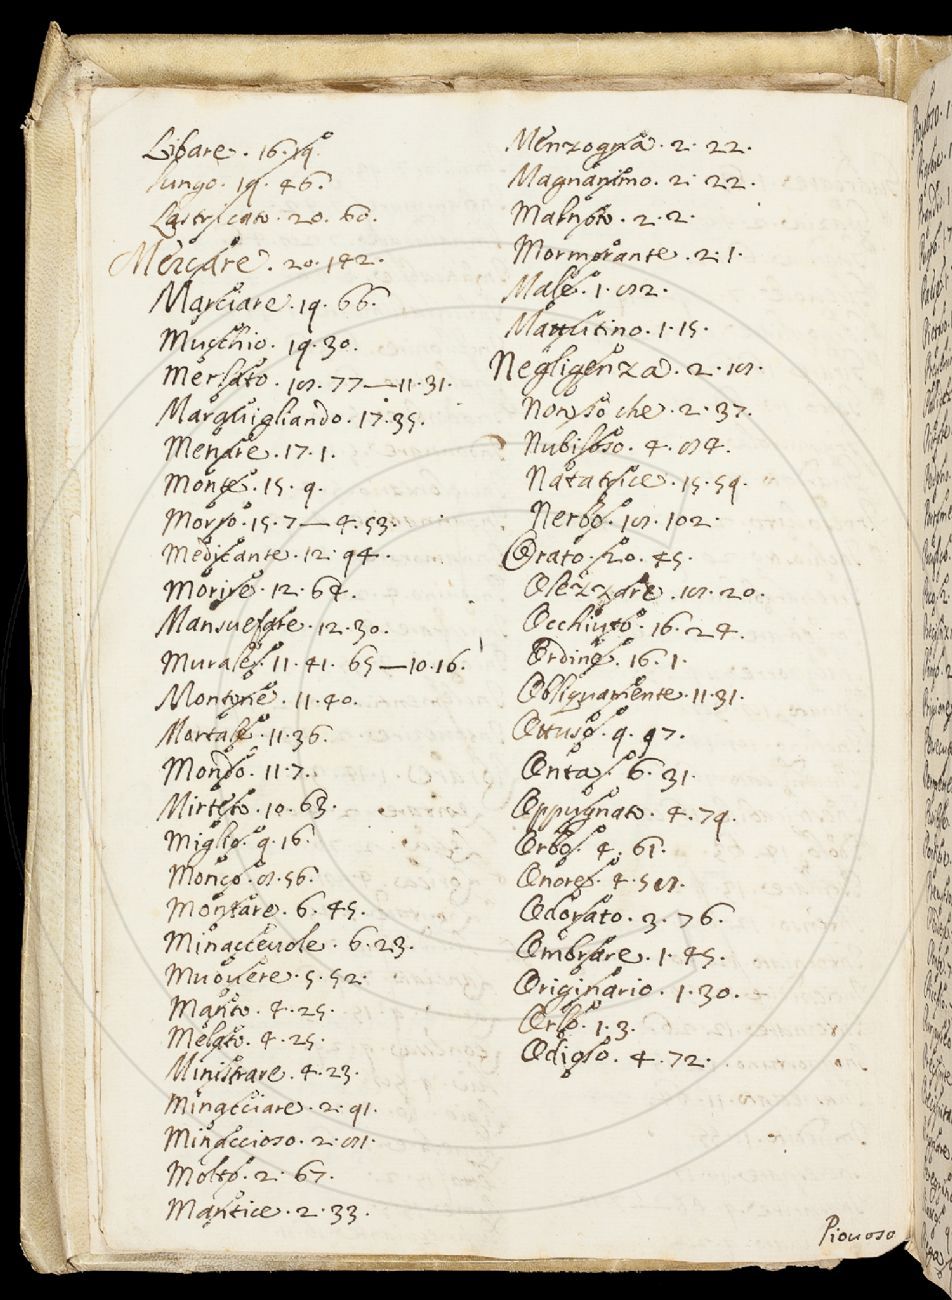 Libare. 16. 19.
Lungo. 19. 46.
Lastricato. 20. 60.
Mercare. 20. 142.
Marciare. 19. 66.
Muschio. 19. 30.
Merlato. 18. 77 — 11. 31.
Marauigliando. 17. 35.
Menare. 17. 1.
Monte. 15. 9.
Morso. 15. 7 — 4. 53.
Medicante. 12. 94.
Morire. 12. 64.
Mansuefare. 12. 30.
Murale. 11. 41. 65 — 10. 16.
Montone. 11. 40.
Mortale. 11. 36.
Mondo. 11. 7.
Mirteto. 10. 63.
Miglio. 9. 16.
Monco. 8. 56.
Montare. 6. 45.
Minacceuole. 6. 23.
Muouere. 5. 52.
Manto. 4. 25.
Melato. 4. 25.
Ministrare. 4. 23.
Minacciare. 2. 91.
Minaccioso. 2. 81.
Molto. 2. 67.
Mantice. 2. 33.
Menzogna. 2. 22.
Magnanimo. 2. 22.
Malnoto. 2. 2.
Mormorante. 2. 1.
Male. 1. 82.
Mattutino. 1. 15.
Negligenza. 2. 18.
Non so che. 2. 37.
Nubiloso. 4. 84.
Natatrice. 15. 59.
Nerbo. 18. 102.
Orato. 20. 45.
Olezzare. 18. 20.
Occhiuto. 16. 24.
Ordine. 16. 1.
Obliquamente. 11. 31.
Ottuso. 9. 97.
Onta. 6. 31.
Oppugnato. 4. 79.
Orbo. 4. 61.
Onore. 4. 58.
Odorato. 3. 76.
Ombrare. 1. 45.
Originario. 1. 30.
Orlo. 1. 3.
Odioso. 4. 72.
Piouoso